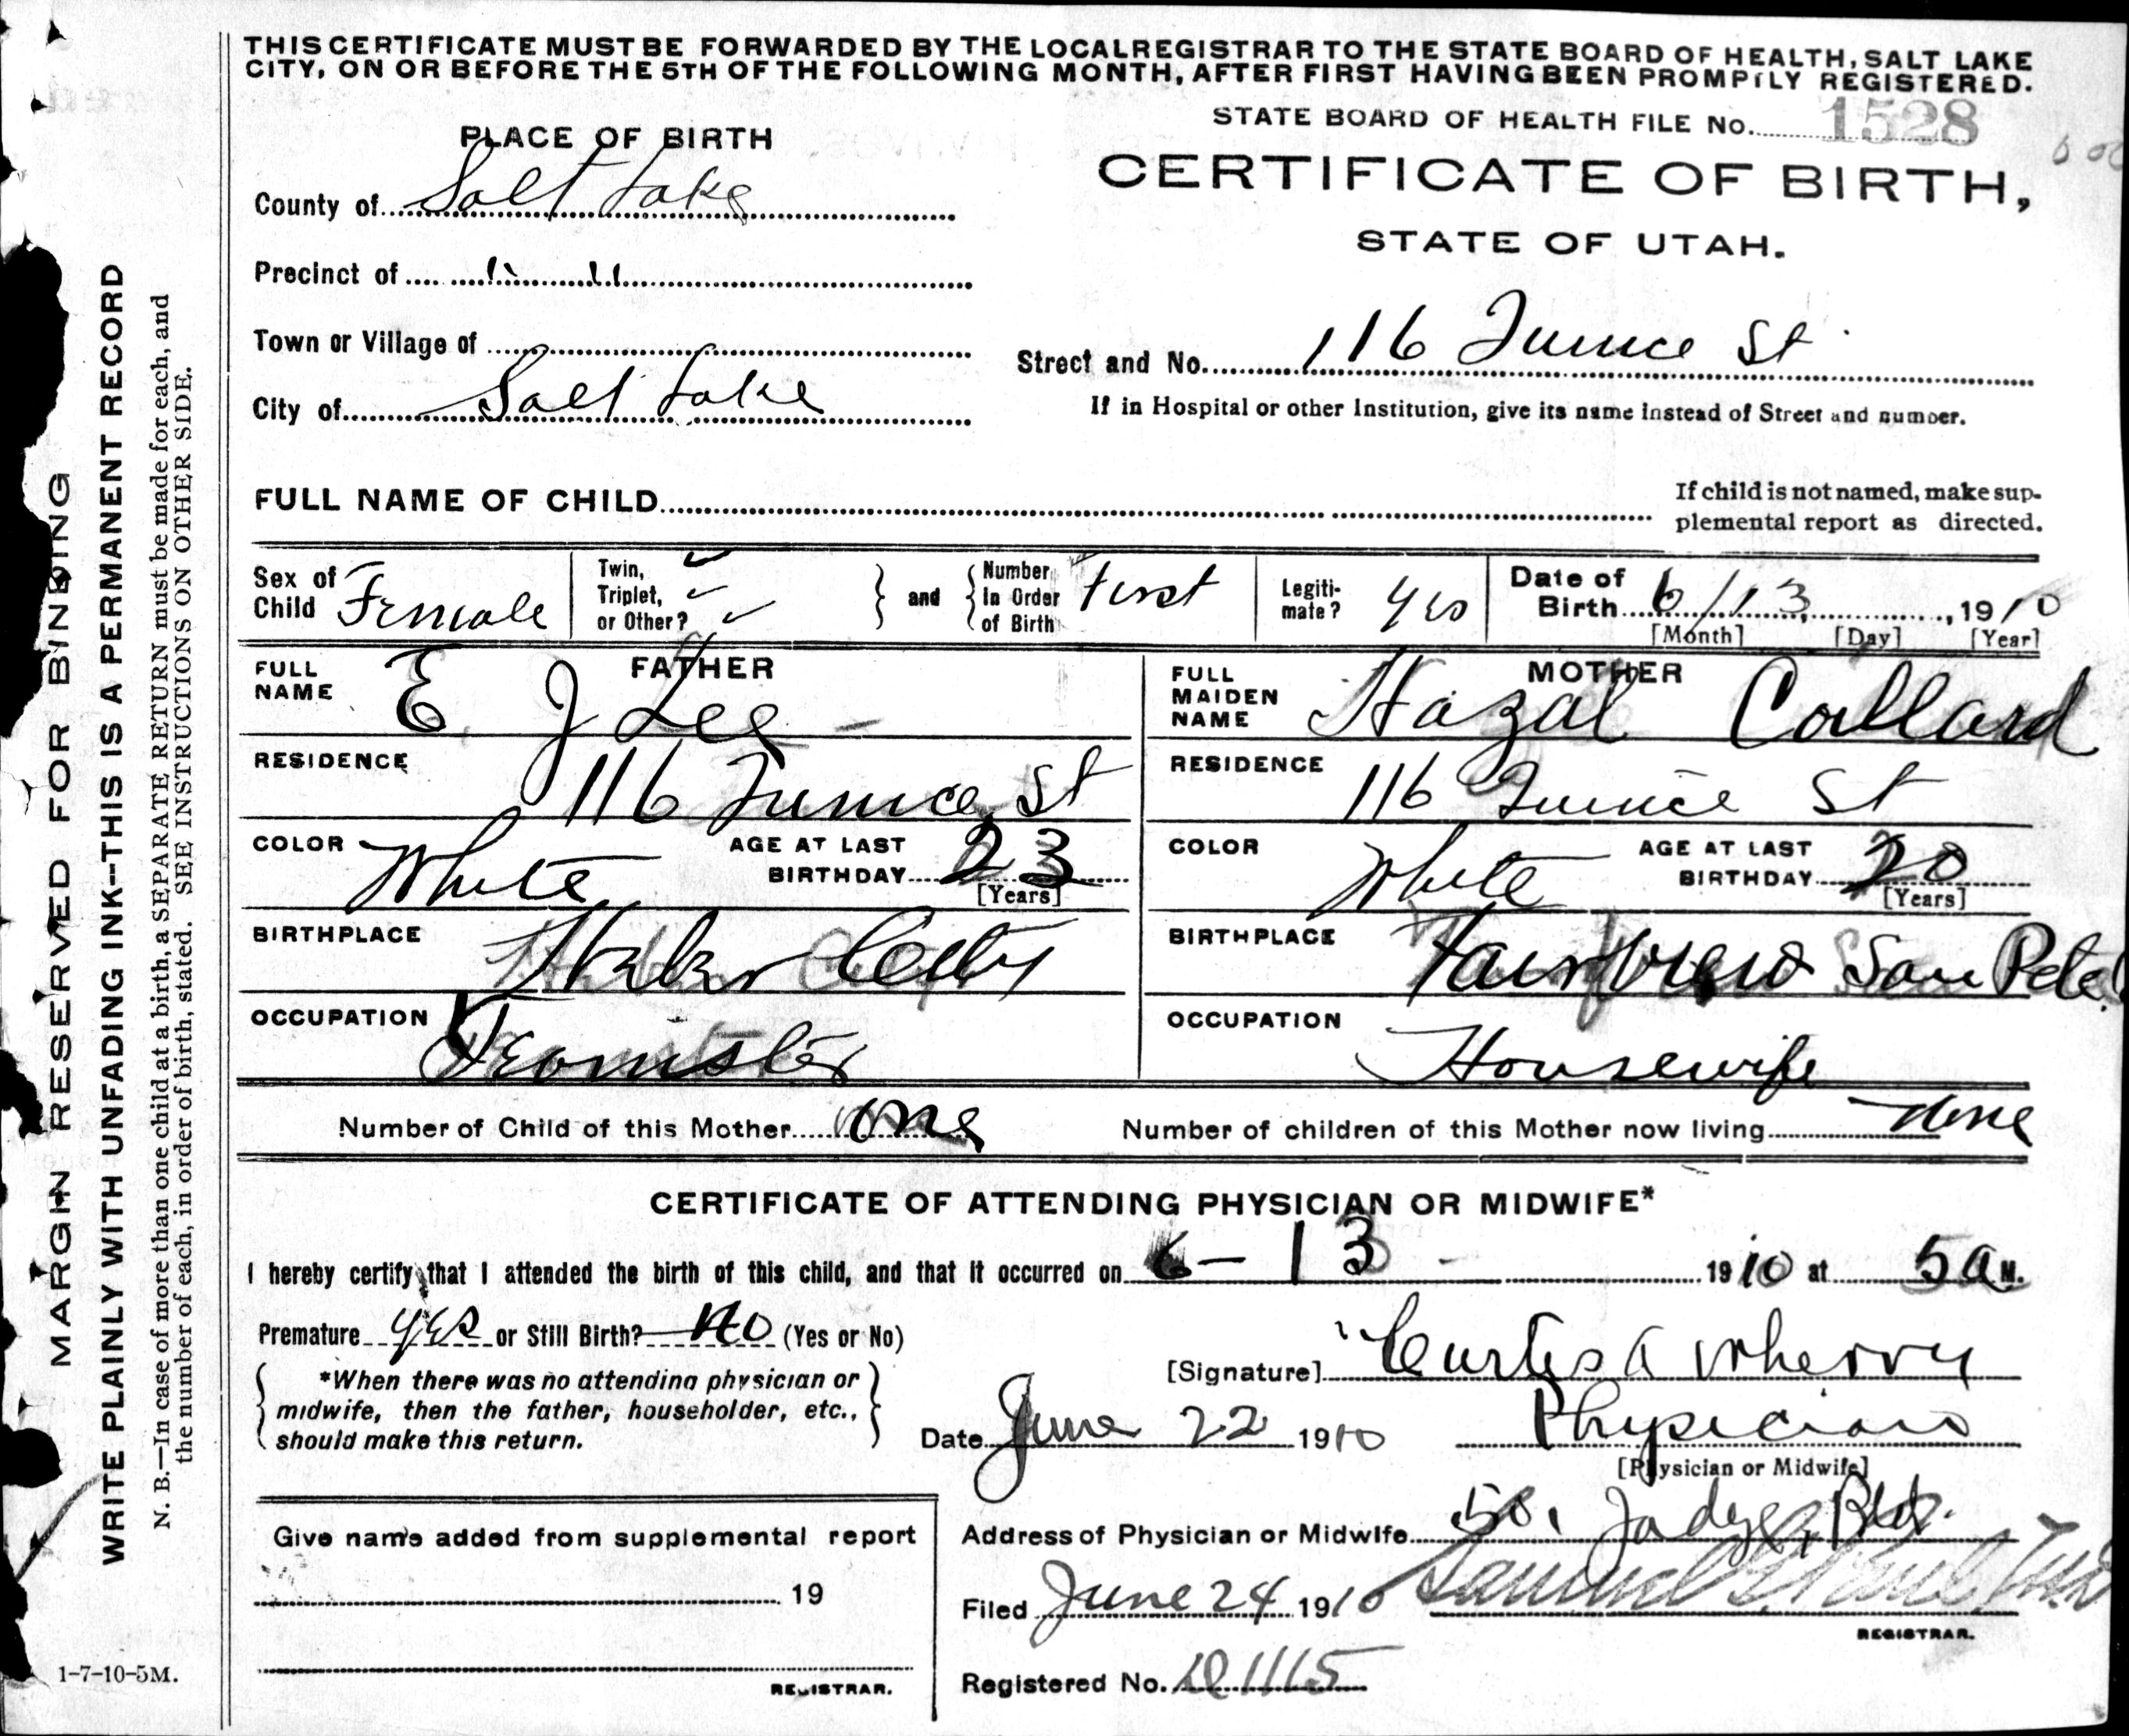 THIS CERTIFICATE MUST BE FORWARDED BY THE LOCAL REGISTRAR TO THE STATE BOARD OF HEALTH, SALT LAKE
CITY, ON OR BEFORE THE 5TH OF THE FOLLOWING MONTH, AFTER FIRST HAVING BEEN PROMPTLY REGISTERED.
STATE BOARD OF HEALTH FILE No. 1528
PLACE OF BIRTH
CERTIFICATE OF BIRTH,
STATE OF UTAH.
County of Salt Lake
Precinct of " "
Town or Village of
Street and No. 116 St
City of Salt Lake
If in Hospital or other Institution, give its name instead of Street and number.
FULL NAME OF CHILD
If child is not named, make sup-
plemental report as directed.
Sex of Child Female
Twin, Triplet, or Other?
and
Number In Order of Birth first
Legiti-mate? yes
Date of Birth 6/13, 1910
[Month] [Day] [Year]
FATHER
FULL NAME E J Lee
RESIDENCE 116 St
COLOR White
AGE AT LAST BIRTHDAY 23
[Years]
BIRTHPLACE City
OCCUPATION Teamster
MOTHER
FULL MAIDEN NAME Hazal Collard
RESIDENCE 116 St
COLOR White
AGE AT LAST BIRTHDAY 20
[Years]
BIRTHPLACE Fairview San Pete
OCCUPATION Housewife
Number of Child of this Mother One
Number of children of this Mother now living
CERTIFICATE OF ATTENDING PHYSICIAN OR MIDWIFE*
I hereby certify that I attended the birth of this child, and that it occurred on 6-13- 1910 at 5 a M.
Premature yes or Still Birth? No (Yes or No)
*When there was no attending physician or
midwife, then the father, householder, etc.,
should make this return.
[Signature] Curtis A Wherry
Date June 22 1910
Physician
[Physician or Midwife]
Give name added from supplemental report
19
REGISTRAR.
Address of Physician or Midwife Judge Bld.
Filed June 24 1910 Samuel G. Paul
REGISTRAR.
Registered No. 1115
MARGIN RESERVED FOR BINDING
WRITE PLAINLY WITH UNFADING INK--THIS IS A PERMANENT RECORD
N. B.—In case of more than one child at a birth, a SEPARATE RETURN must be made for each, and
the number of each, in order of birth, stated. SEE INSTRUCTIONS ON OTHER SIDE.
1-7-10-5M.